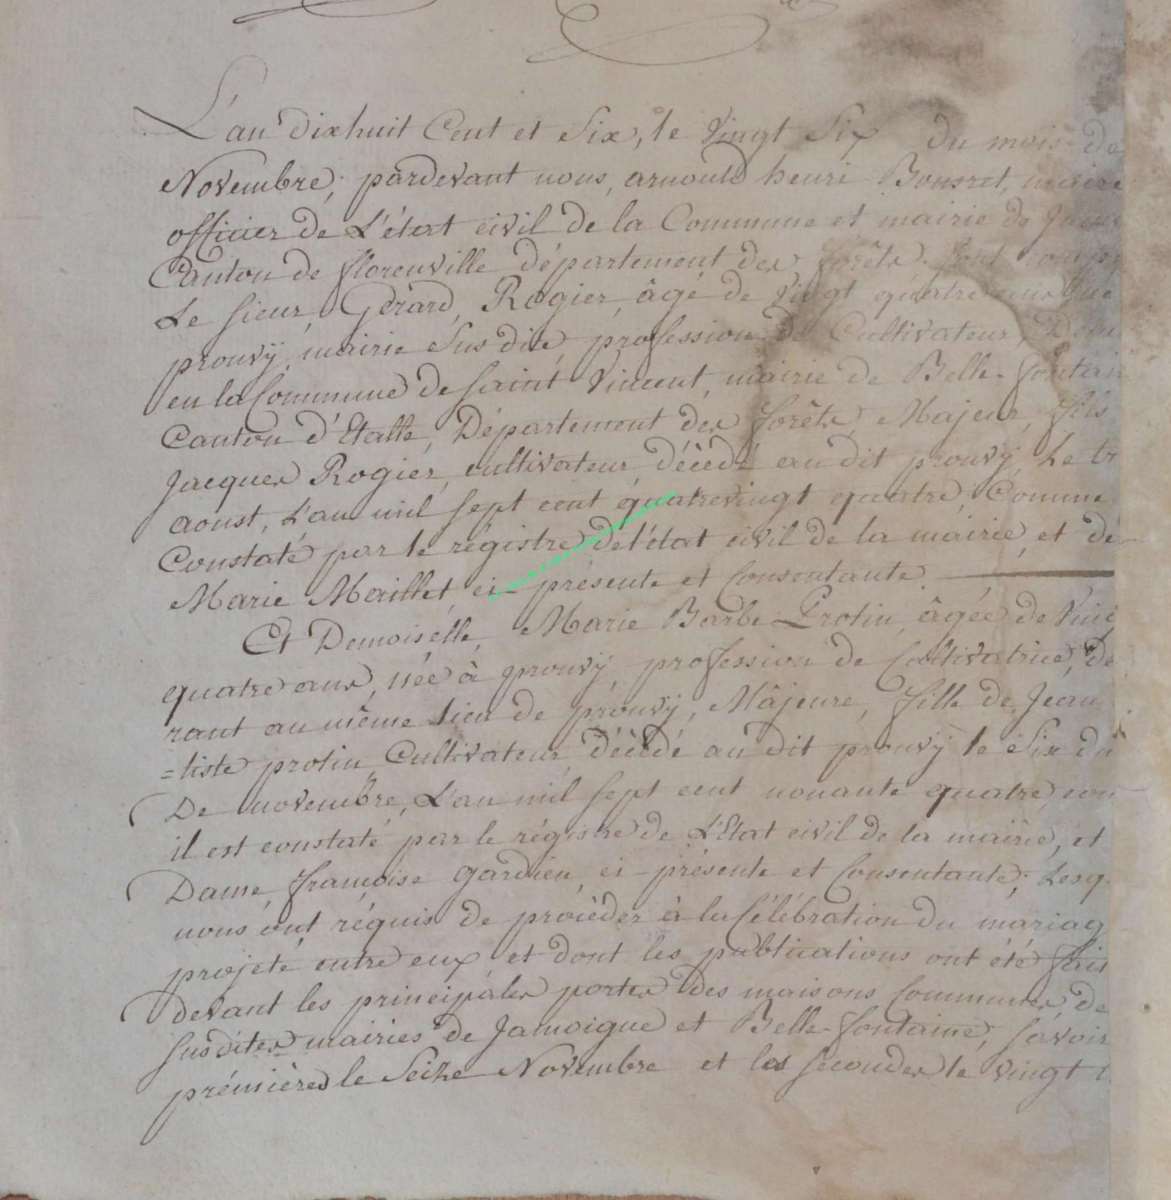 L'an dixhuit Cent et Six, le Vingt Six du mois de
Novembre, pardevant nous, arnould henri maire
officier de L'état civil de la Commune et mairie de
Canton de florenville département des forêts. sont
Le sieur, Gérard, Rogier, âgé de Vingt quatre ans
prouvÿ, mairie Susdite, profession de Cultivateur,
en la Commune de Saint Vincent, mairie de Belle-fontain
Canton d'Etalle, Département des forêts Majeur, fils
Jacques Rogier, cultivateur décédé au dit prouvÿ, Le
aoust, L'an mil sept cent quatrevingt quatre, Comme
Constaté par le régistre de l'état civil de la mairie, et de
Marie Maillet ci-présente et Consentante.
Et Demoiselle, Marie Barbe Protin, âgée de Vin
quatre ans, née à prouvÿ, profession de Cultivatrice, de
rant au même lieu de prouvÿ, Majeure, fille de Jean
=tiste protin Cultivateur décédé au dit prouvÿ le Six du
De novembre, L'an mil sept cent nonante quatre com
il est constaté par le régistre de L'Etat civil de la mairie, et
Dame, françoise Gardien, ci-présente et Consentante; Lesq
nous ont réquis de procéder à la Célébration du mariag
projeté entre eux et dont les publications ont été fait
devant les principales portes des maisons Communes de
susdites mairies de Jamoigne et Belle-fontaine, savoir
prémières le Seize Novembre et les secondes le vingt